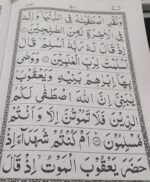 وَلَقَدِ اصْطَفَيْنٰهُ فِي الدُّنْيَا وَاِنَّهٗ
فِي الْاٰخِرَةِ لَمِنَ الصّٰلِحِيْنَ
اِذْ قَالَ لَهٗ رَبُّهٗۤ اَسْلِمْ قَالَ
اَسْلَمْتُ لِرَبِّ الْعٰلَمِيْنَ وَوَصّٰى
بِهَاۤ اِبْرٰهٖمُ بَنِيْهِ وَيَعْقُوْبُ
يٰبَنِيَّ اِنَّ اللّٰهَ اصْطَفٰى لَكُمُ
الدِّيْنَ فَلَا تَمُوْتُنَّ اِلَّا وَاَنْتُمْ
مُّسْلِمُوْنَ اَمْ كُنْتُمْ شُهَدَآءَ اِذْ
حَضَرَ يَعْقُوْبَ الْمَوْتُ اِذْ قَالَ